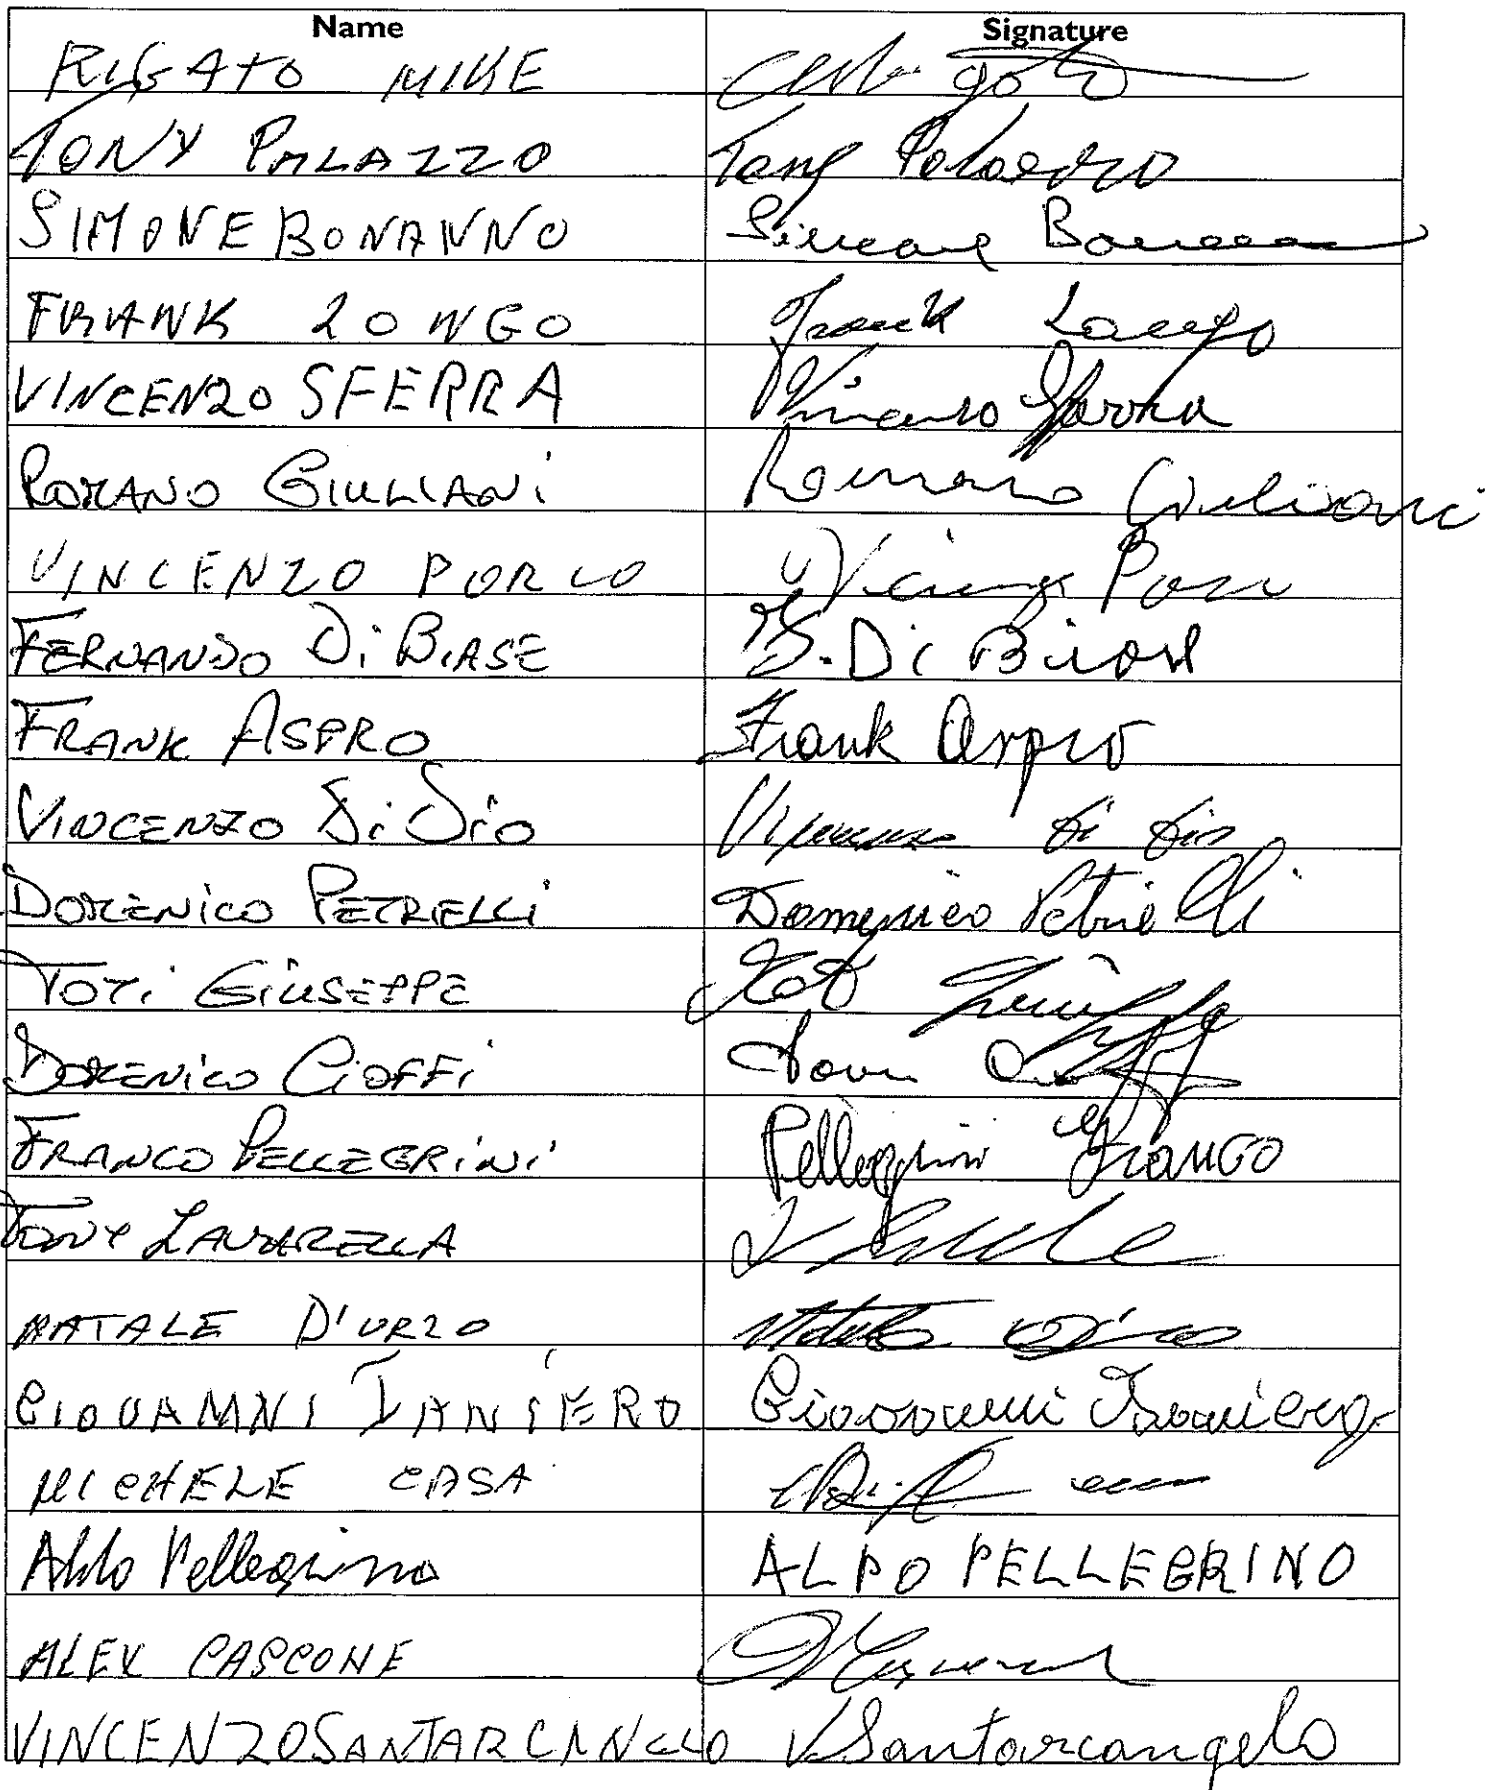 Name Signature
RIGATO MIKE
TONY PALAZZO Tony Palazzo
SIMONE BONANNO Simone Bonanno
FRANK LONGO Frank Longo
VINCENZO SFERRA Vincenzo Sferra
ROMANO GIULIANI Romano Giuliani
VINCENZO PORCO
FERNANDO Di BIASE F. Di Biase
FRANK ASPRO Frank Aspro
VINCENZO Di Dio Vincenzo Di Dio
DOMENICO PETRELLI Domenico Petrielli
TOTi GiUSEPPE Toti Giuseppe
DOMENICO CiOFFi
FRANCO PELLEGRiNi Pellegrini Franco
TONY
NATALE D'URZO
GIOVANNI IANIERO Giovanni
MICHELE CASA
Aldo Pellegrino ALDO PELLEGRINO
ALEX CASCONE
VINCENZO SANTARCANGELO V Santarcangelo